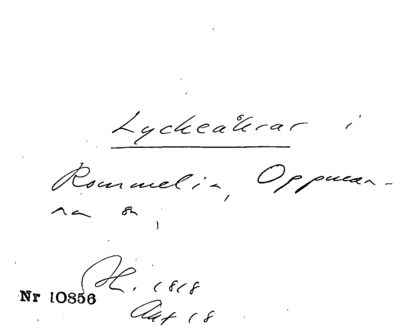 Lyckeåkrar i
Rommelia, Oppman-
na sn,
H. 1818
Akt 18
Nr 10856